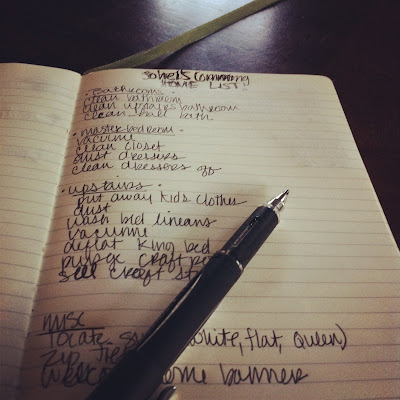 coming
HOME LIST:
Bathrooms
clean bathroom
clean upstairs bathroom
clean half bath
master bedroom
vacuume
clean closet
dust dressers
clean dressers off
upstairs
put away kids clothes
dust
wash bed lineans
vacuume
deflat king bed
purge craft
sell craft
misc
locate white, flat, queen)
zip
banner